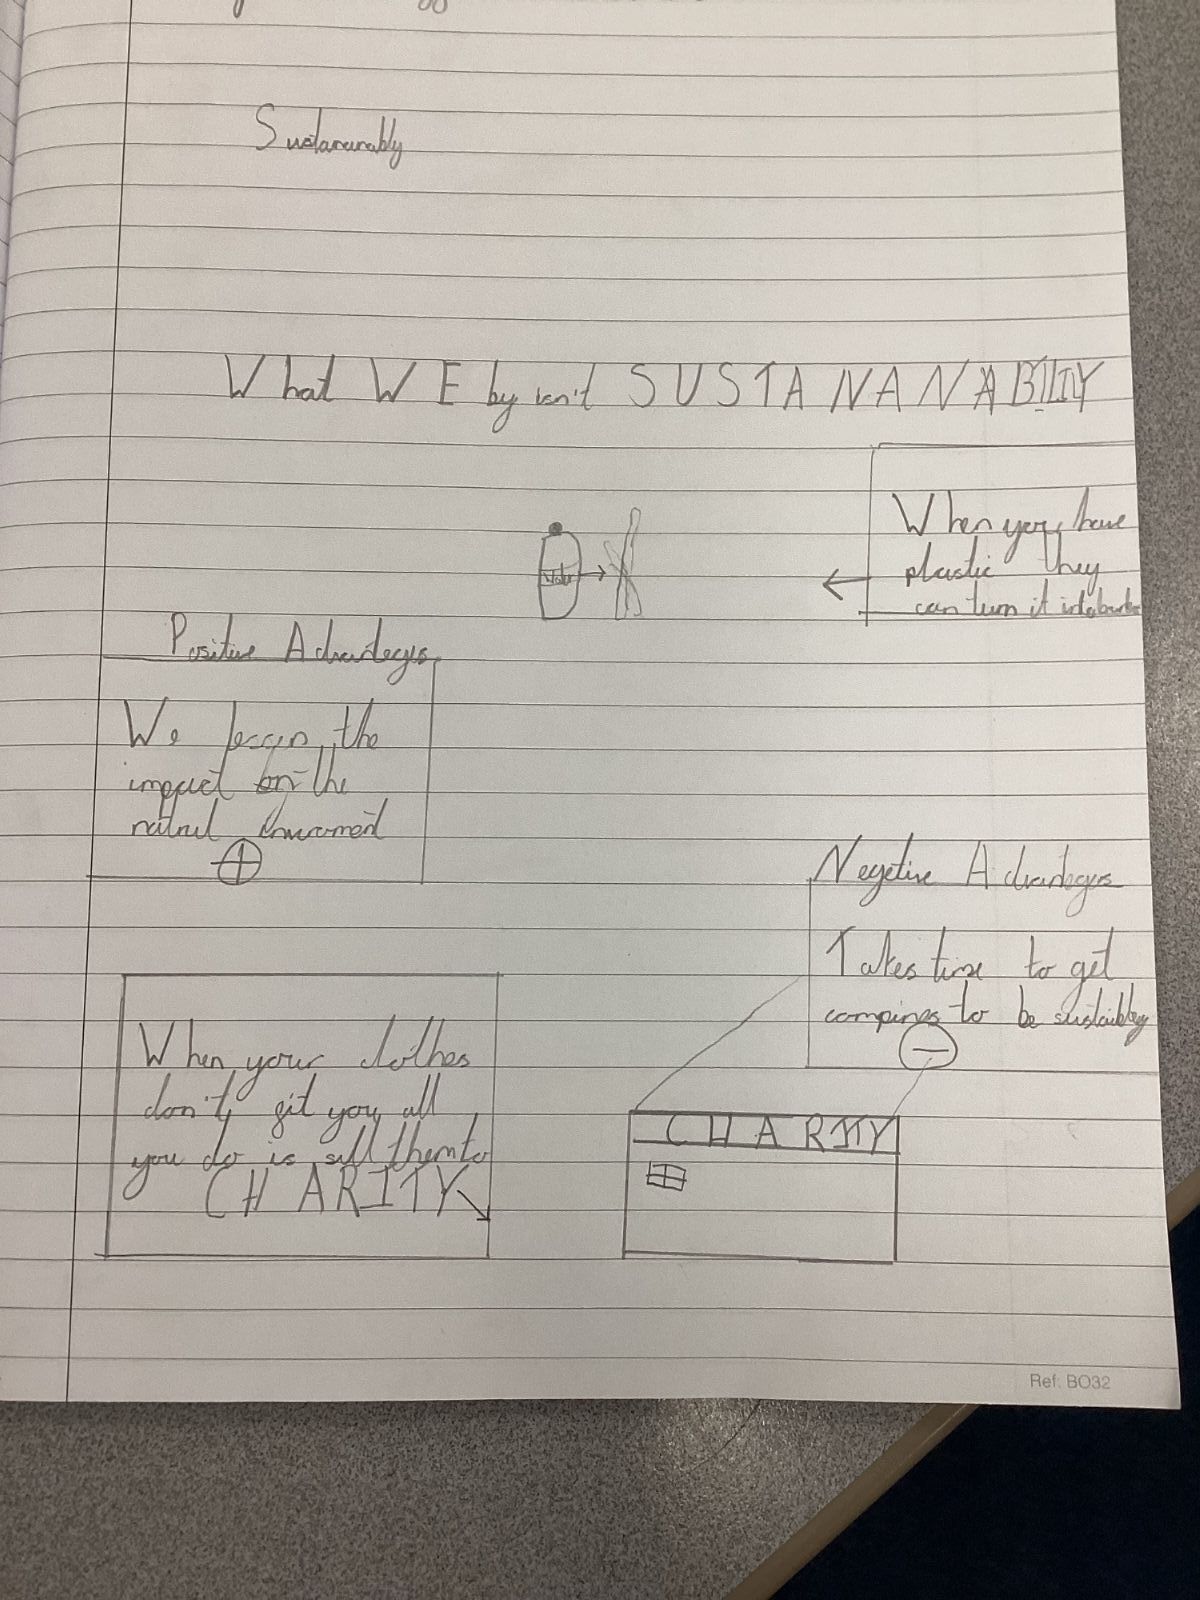 Sustananably
What WE by isn't SUSTANANABILITY
When you have
plastic they
can turn it into
Water
Positive Advanteges
We lessen the
impact on the
natrul enviroment
+
Negetive Advanteges
Takes time to get
compines to be sustaibley
-
When your clothes
don't fit you all
you do is sell them to
CHARITY
CHARITY
Ref: BO32